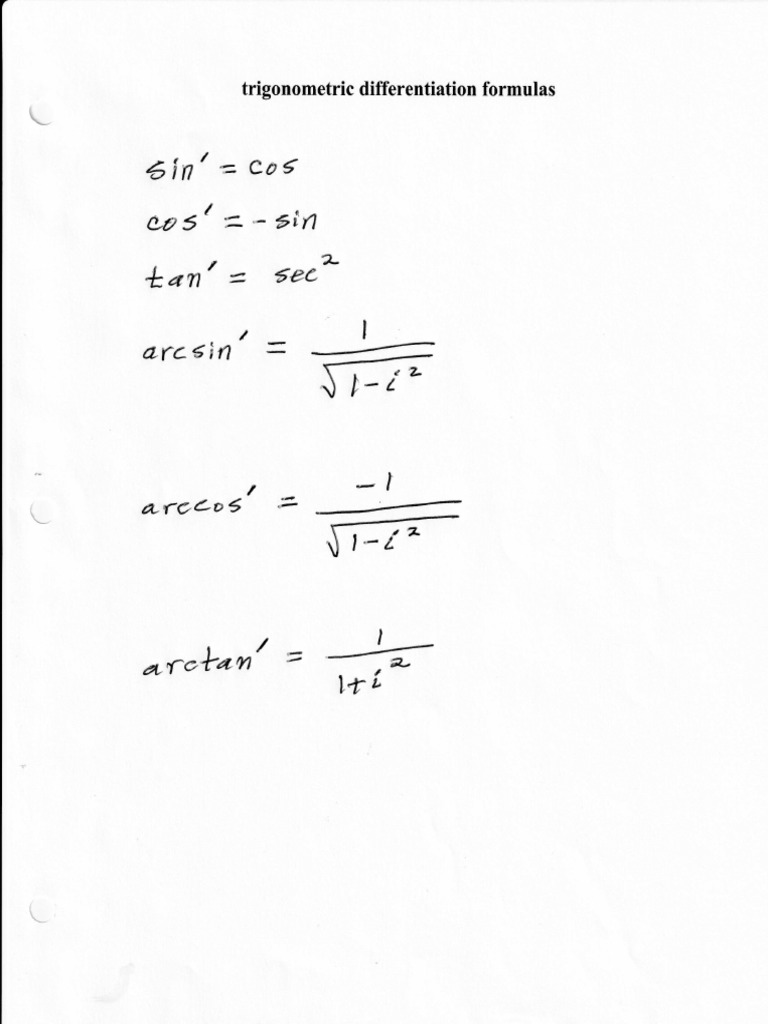 trigonometric differentiation formulas
sin' = cos
cos' = - sin
tan' = sec²
arcsin' = 1/√(1-i²)
arccos' = -1/√(1-i²)
arctan' = 1/(1+i²)